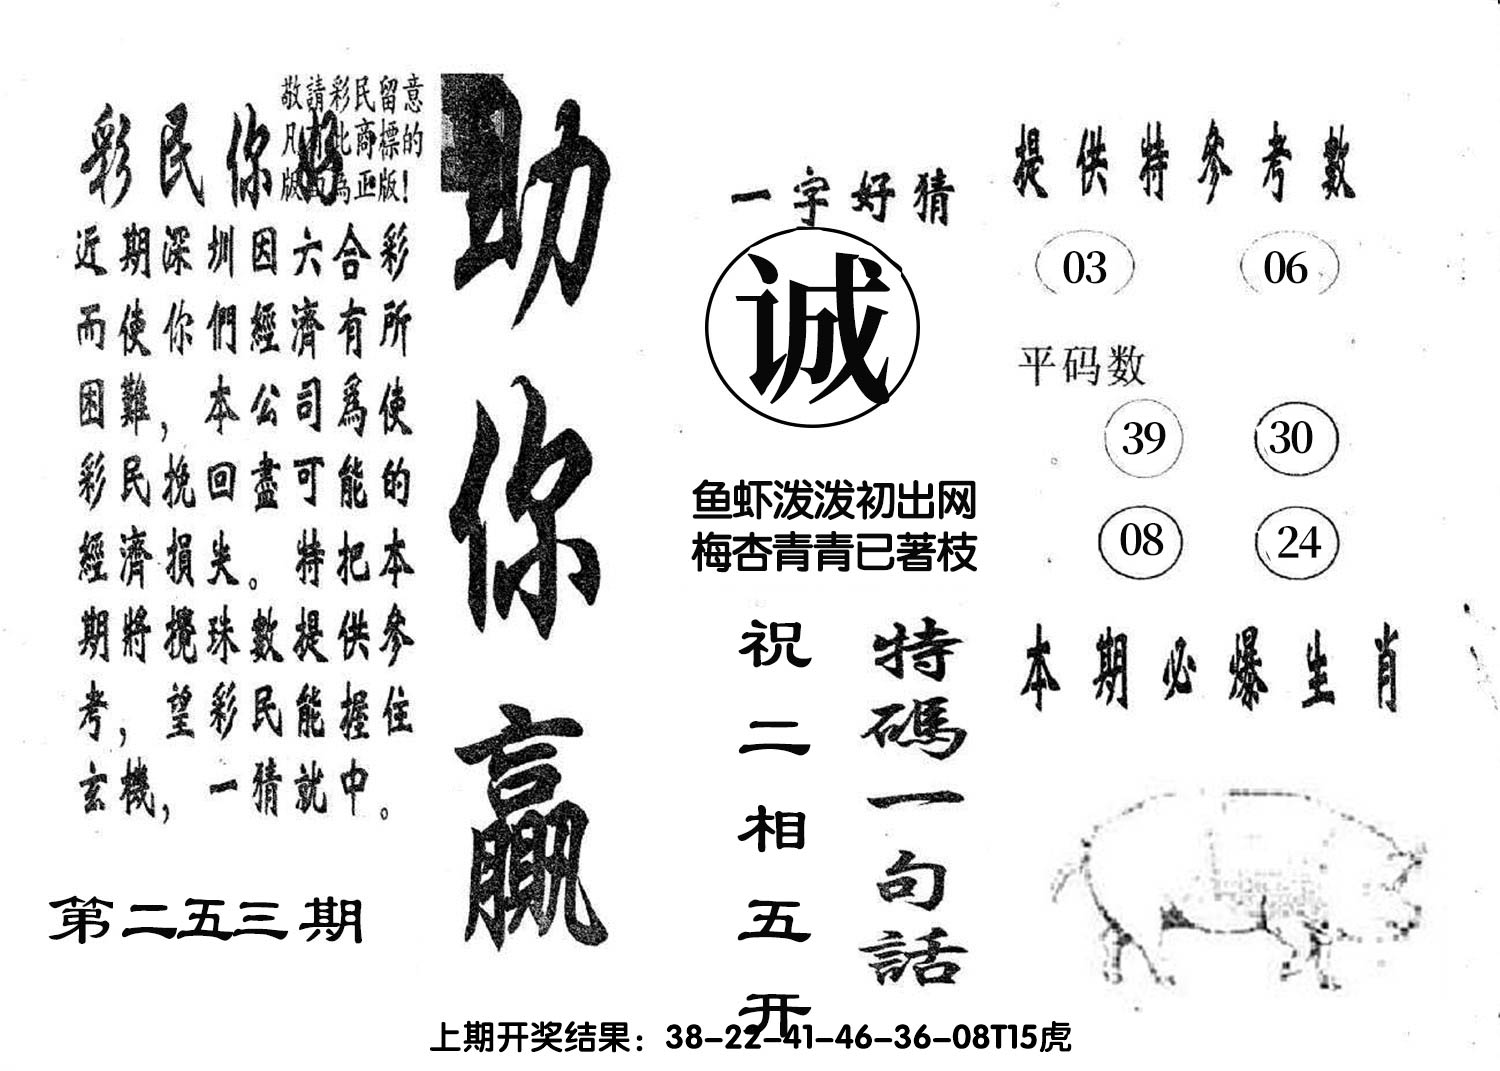 敬請彩民留意
凡有此商標的
版面為正版！
彩民你好
近期深圳因六合彩
而使你們經濟有所
困難，本公司爲使
彩民挽回盡可能的
經濟損失。特把本
期將攪珠數提供參
考，望彩民能握住
玄機，一猜就中。
第二五三期
助你贏
一字好猜
诚
鱼虾泼泼初出网
梅杏青青已著枝
特碼一句話
祝二相五开
提供特參考數
03 06
平码数
39 30
08 24
本期必爆生肖
上期开奖结果：38-22-41-46-36-08T15虎